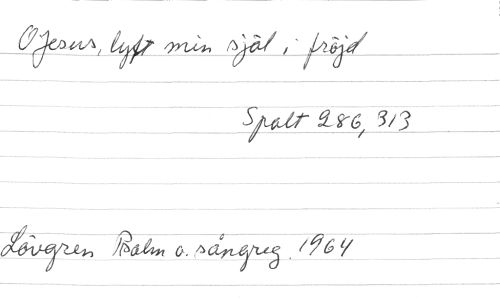 O Jesus, lyft min själ i fröjd
Spalt 286, 313
Lövgren Psalm o. sångreg. 1964